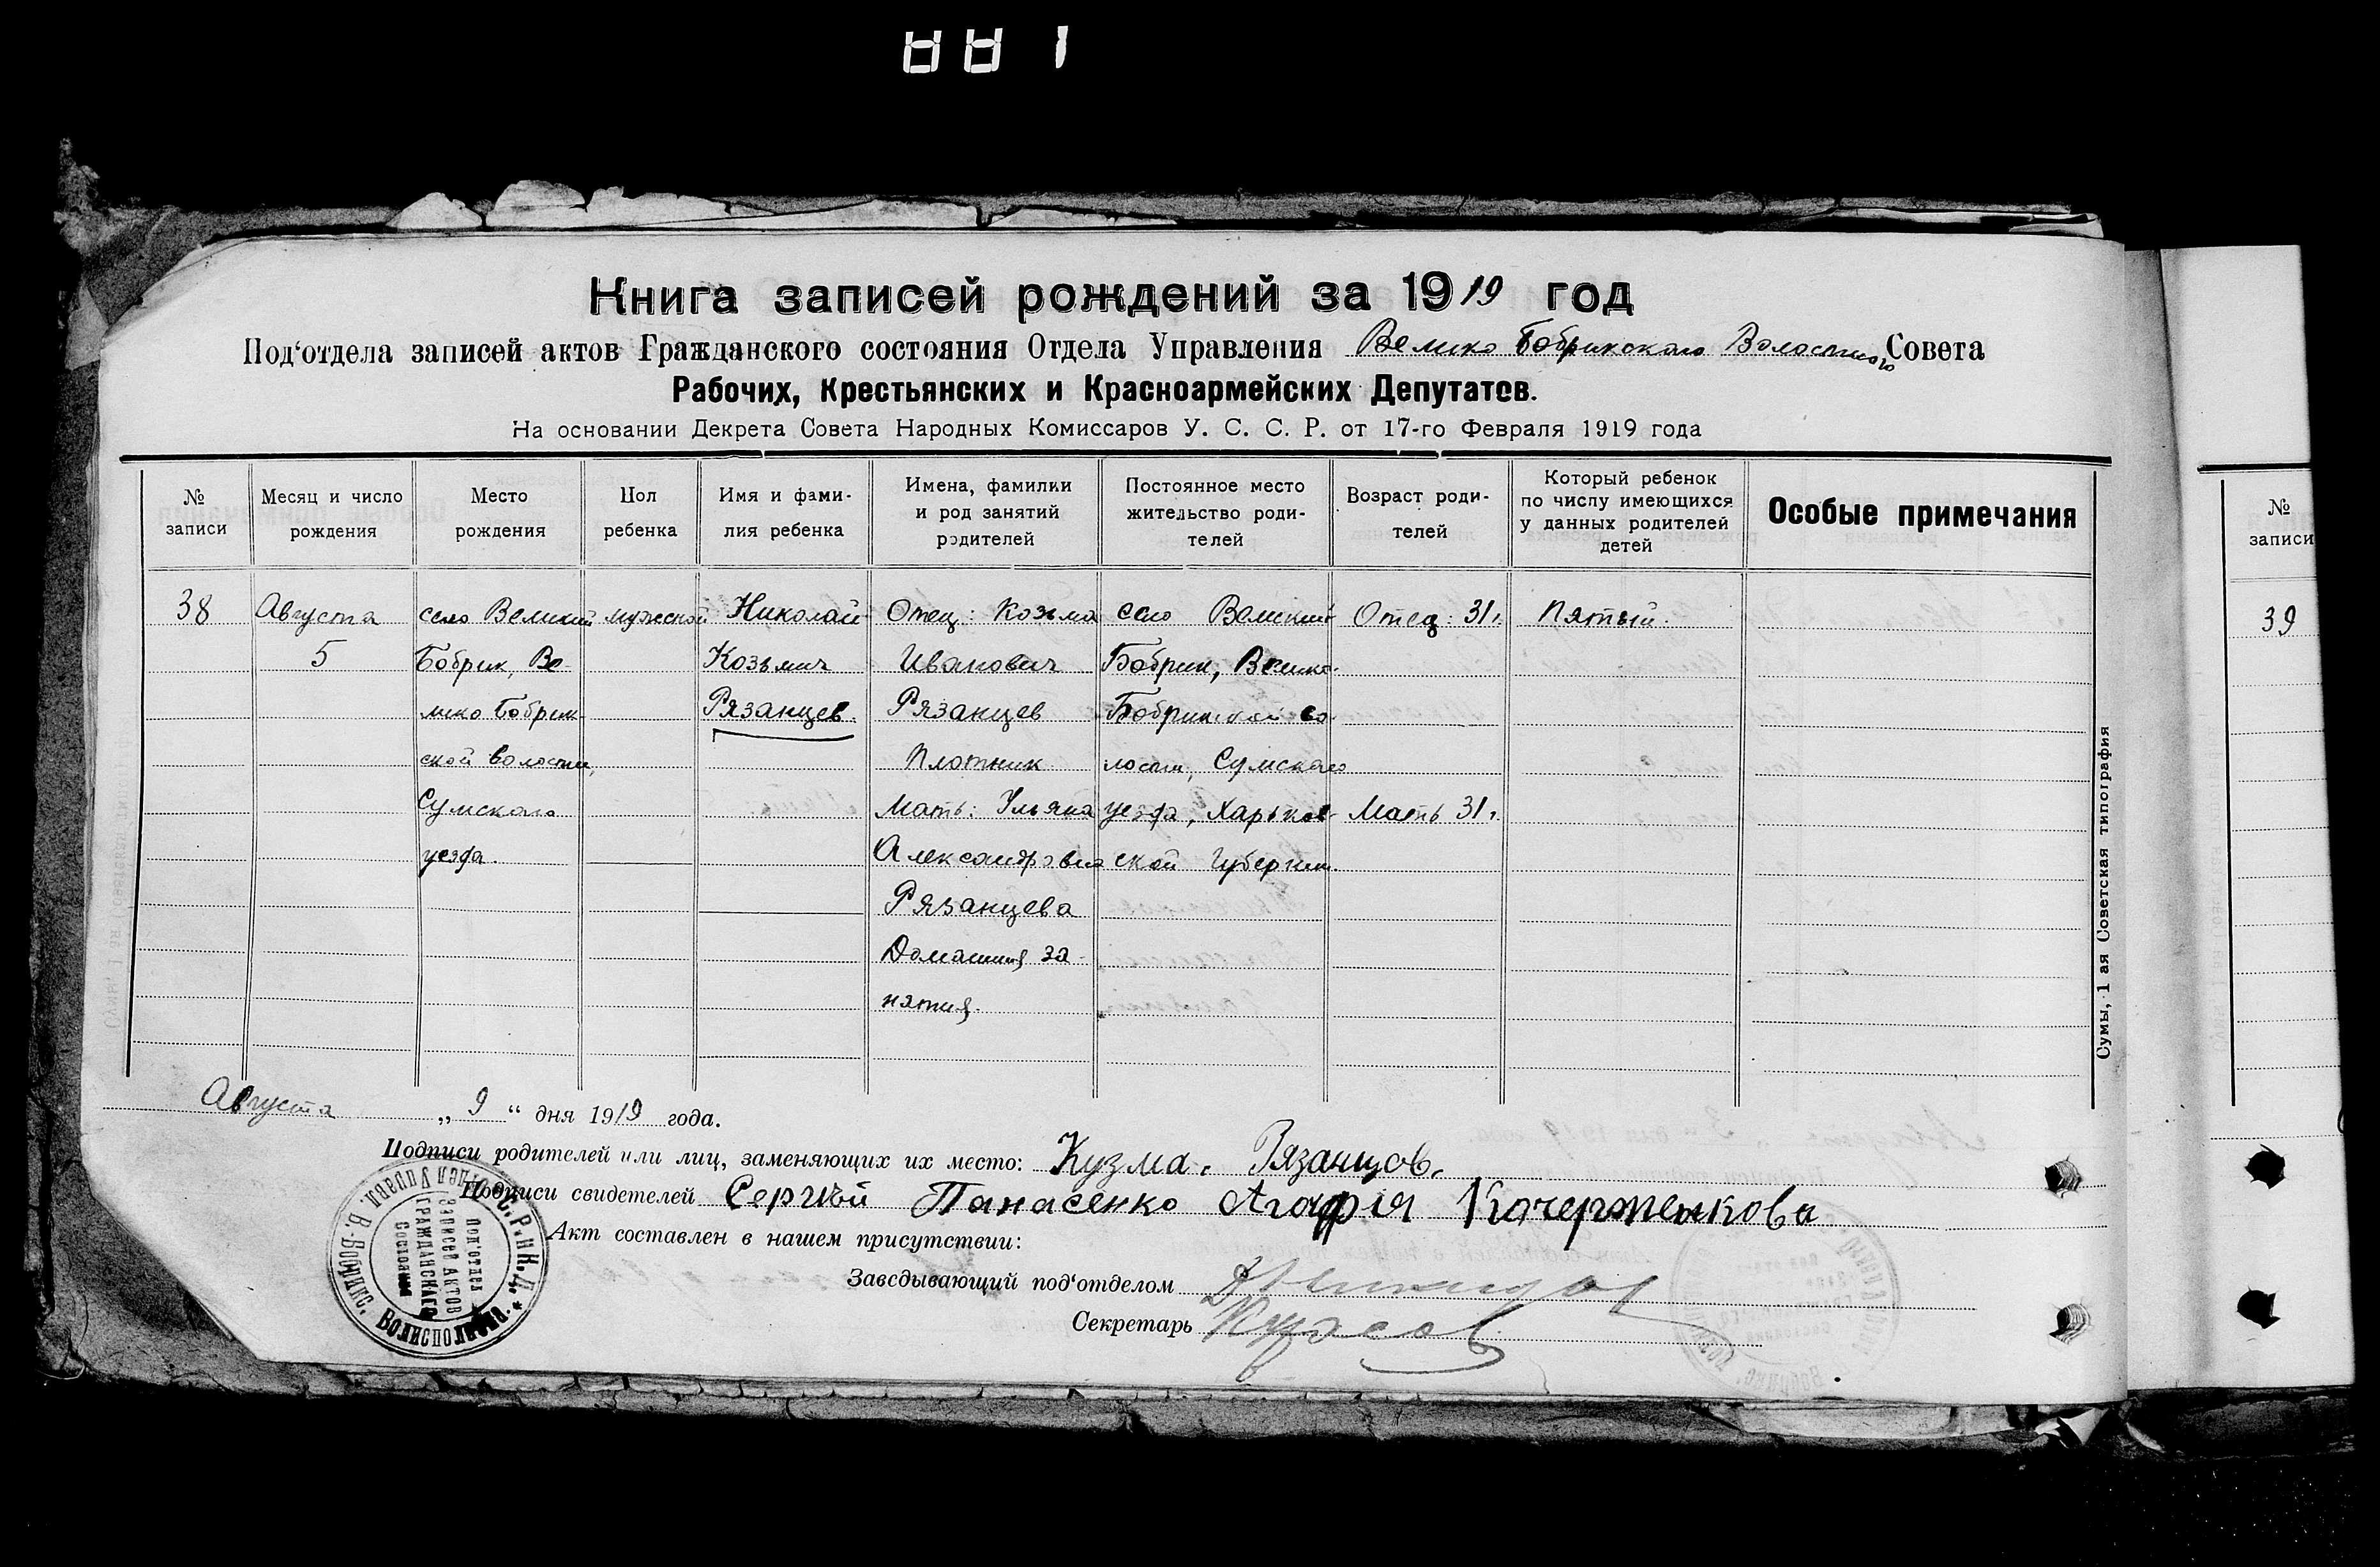 1
Книга записей рождений за 1919 год
Под‘отдела записей актов Гражданского состояния Отдела Управления Велико Бобрикского Волостного Совета
Рабочих, Крестьянских и Красноармейских Депутатов.
На основании Декрета Совета Народных Комиссаров У. С. С. Р. от 17-го Февраля 1919 года
№
записи
Месяц и число
рождения
Место
рождения
Пол
ребенка
Имя и фами-
лия ребенка
Имена, фамилии
и род занятий
родителей
Постоянное место
жительство роди-
телей
Возраст роди-
телей
Который ребенок
по числу имеющихся
у данных родителей
детей
Особые примечания
38
Августа
5
село Великий
Бобрик, Ве-
лико Бобрик-
ской волости,
Сумского
уезда.
мужской
Николай
Козьмич
Рязанцев.
Отец: Козьма
Иванович
Рязанцев
Плотник
Мать: Ульяна
Александровна
Рязанцева
Домашния за-
нятия.
село Великий
Бобрик, Велико-
Бобрикской во-
лости, Сумского
уезда, Харьков-
ской Губернии.
Отец: 31 г.
Мать 31 г.
Пятый.
№
записи
39
Сумы, 1 ая Советская типография
Августа „ 9 “ дня 1919 года.
Подписи родителей или лиц, заменяющих их место: Кузма. Рязанцов.
Подписи свидетелей Сергѣй Панасенко Агафія Кочерженкова
Акт составлен в нашем присутствии:
Заведывающий под‘отделом
Секретарь
С.Р. и К.Д. * Отдел Управл. В.-Бобрикс. Волисполкома
Под‘отдел
Записей Актов
Гражданскаго
Состояния